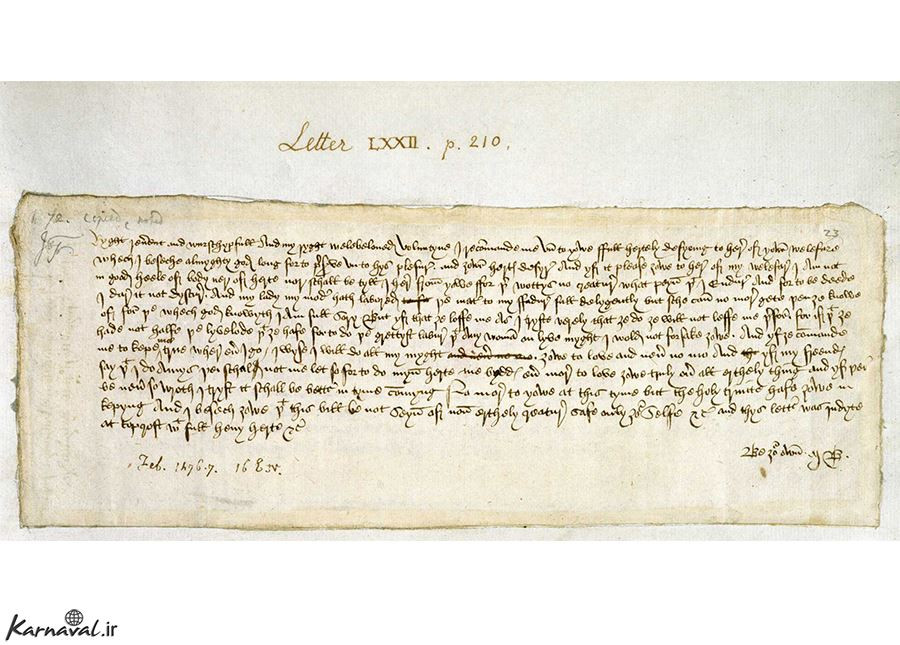 Letter LXXII. p. 210.
23
Ryght reverent and wurschypfull And my ryght welebeloved Voluntyne I recommande me vn to yowe ffull hertely desyring to here of yowr welefare
whech I beseche almyghty god long for to preserve vn to hys plesure and ȝowr hertys desyre And yf it please ȝowe to here of my welefare I Am not
in good heele of body ner of herte nor schall be tyll I here from yowe ffor þer wottys no creature what peyn þat I Endure And for to be deede
I dure it not dyscure And my lady my moder hath labored þe mater to my ffadure full delygently but sche can no more gete þen ȝe knowe
of for þe whech god knowyth I Am full sory But yf that ȝe loffe me As I tryste verely that ȝe do ȝe will not leffe me þerfor for if þat ȝe
hade not halfe þe lyvelode þat ȝe hafe for to do þe grettyst labure þat Any woman on lyve myght I wold not forsake ȝowe And yf ȝe commande
me to kepe me true wherever I go I wyse I will do all my myght ȝowe to love and never no mo And yf my freendys
sey þat I do Amys þei schal not me let so for to do myne herte me bydds ever more to love ȝowe truly over all erthely thing and yf þei
be never so wroth I tryst it schall be better in tyme commyng No more to yowe at this tyme but the holy trinite hafe ȝowe in
kepyng And I besech ȝowe þat this bill be not seyn of none erthely creature safe only ȝour selfe &c And thys letter was indyte
at Topcroft with full hevy herte &c
Be ȝour own M B.
Feb. 1476-7. 16 E. IV.
Karnaval.ir